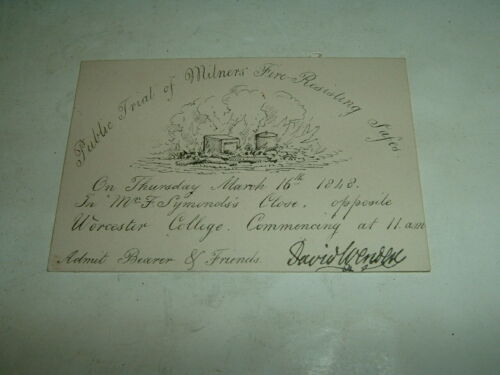 Public Trial of Milners' Fire-Resisting Safes
On Thursday March 16th 1848.
In Mr. F. Symonds's Close, opposite
Worcester College. Commencing at 11.a.m
Admit Bearer & Friends.
David Wenden